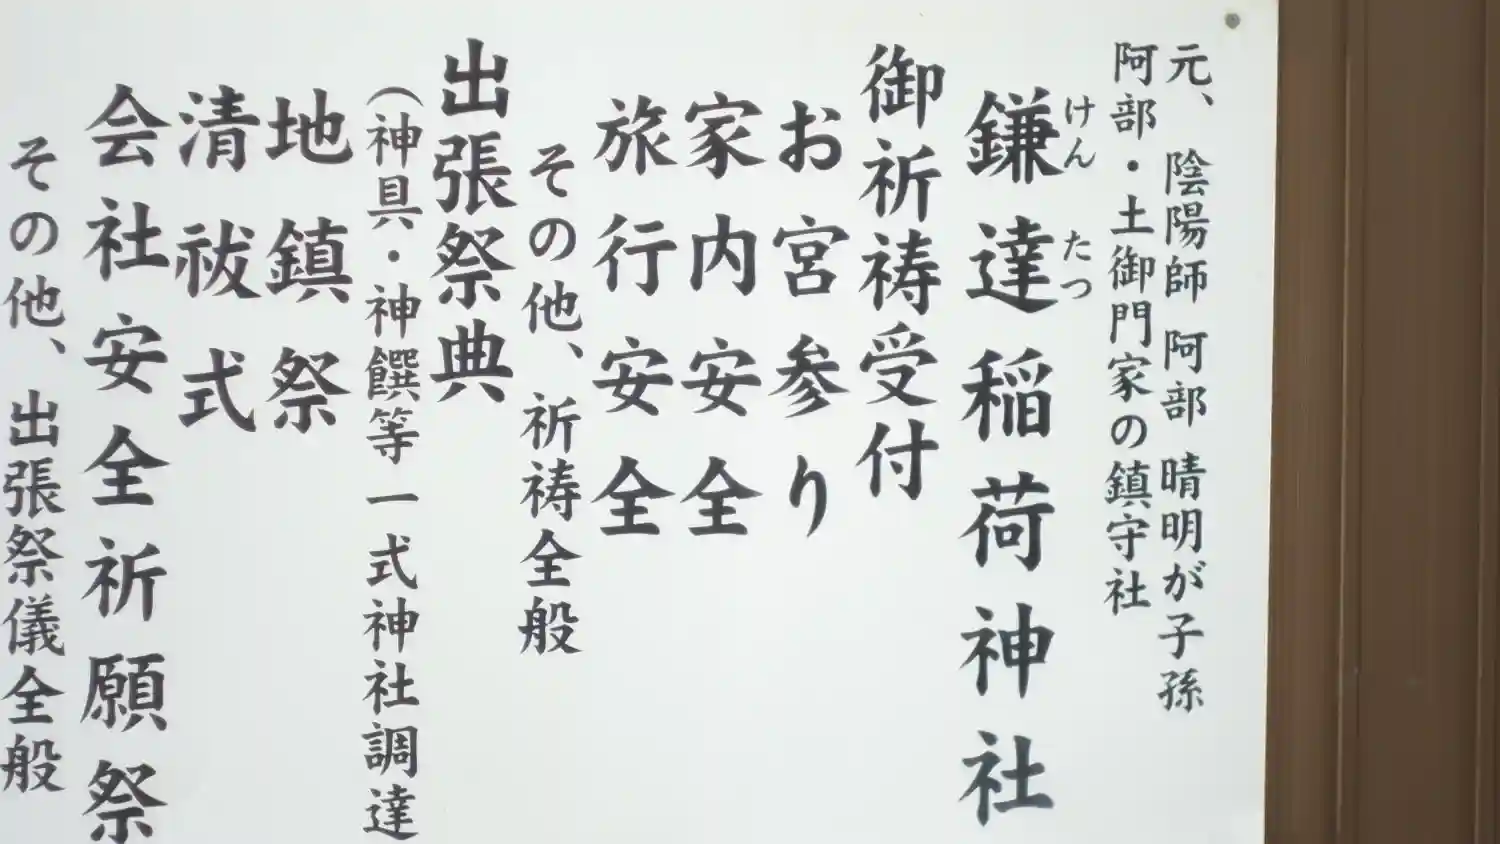 元、陰陽師 阿部 晴明が子孫
阿部・土御門家の鎮守社
けん たつ
鎌達稲荷神社
御祈祷受付
お宮参り
家内安全
旅行安全
その他、祈祷全般
出張祭典
(神具・神饌等一式神社調達
地鎮祭
清祓式
会社安全祈願祭
その他、出張祭儀全般